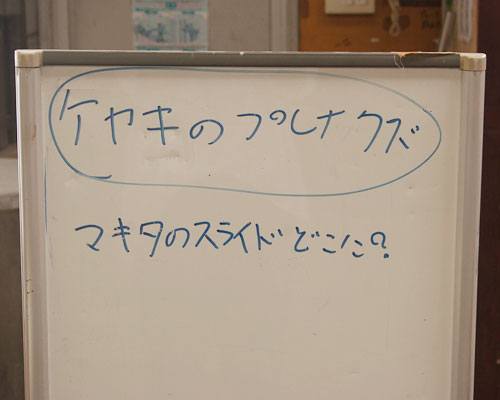 ケヤキのプレナクズ
マキタのスライドどこに?